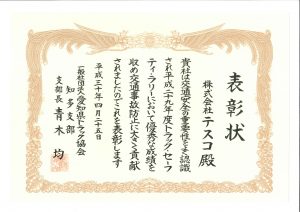 表彰状
株式会社テスコ殿
貴社は交通安全の重要性をよく認識
され平成二十九年度トラック・セーフ
ティ・ラリーにおいて優秀な成績を
収め交通事故防止に大きく貢献
されましたのでこれを表彰します
平成三十年四月二十五日
一般社団法人愛知県トラック協会
知多支部
支部長 青木 均